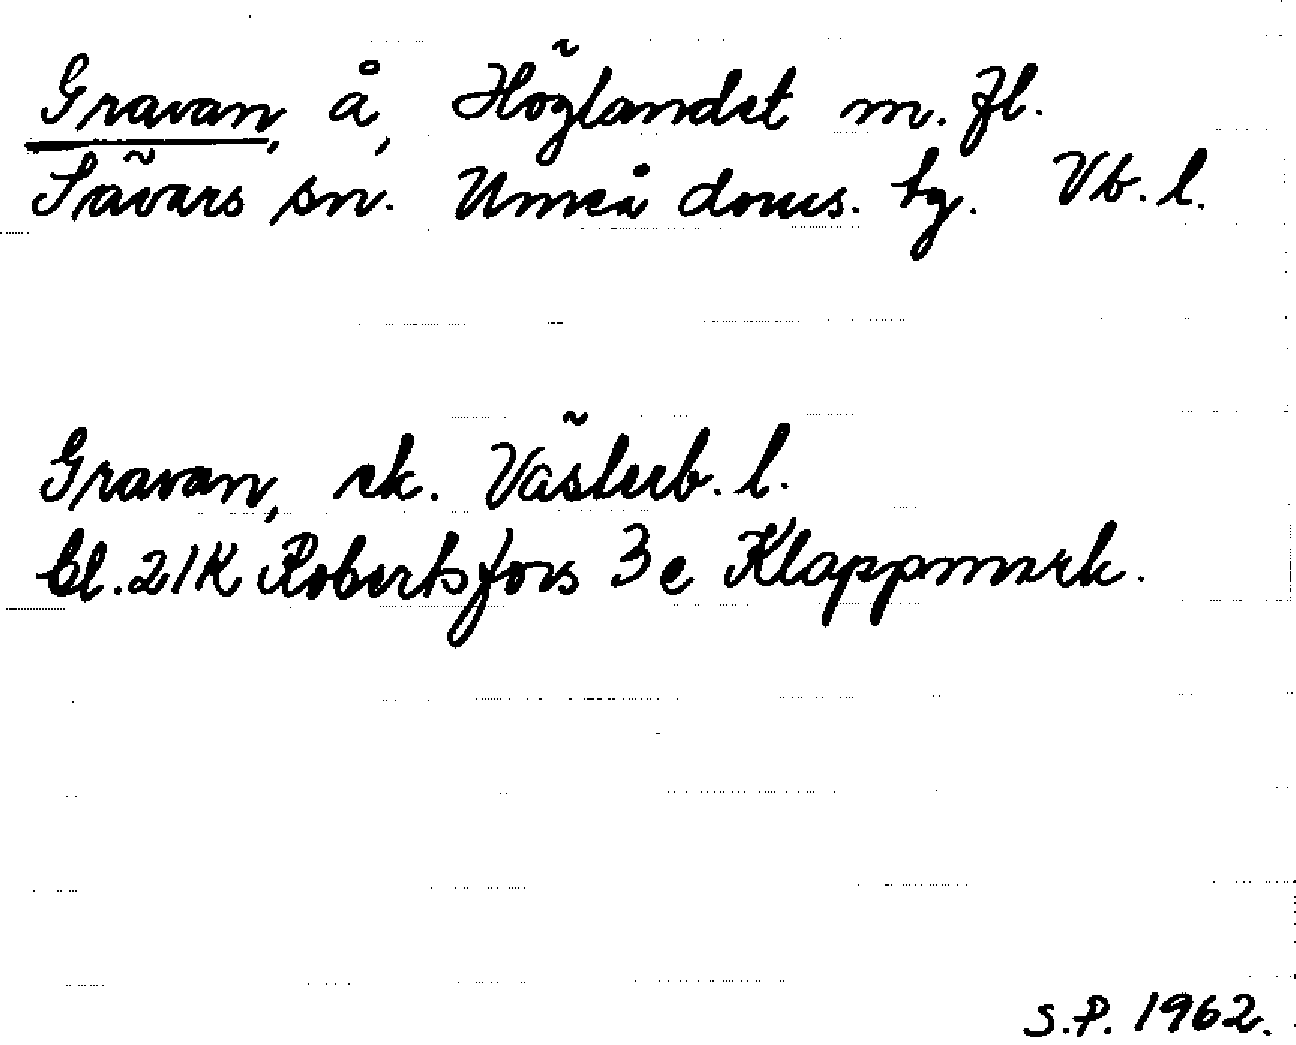 Gravan, å, Höglandet m. fl.
Sävars sn. Umeå doms. tg. Vb. l.
Gravan, ek. Västerb. l.
bl. 21K Robertsfors 3e Klappmark.
S.P. 1962.